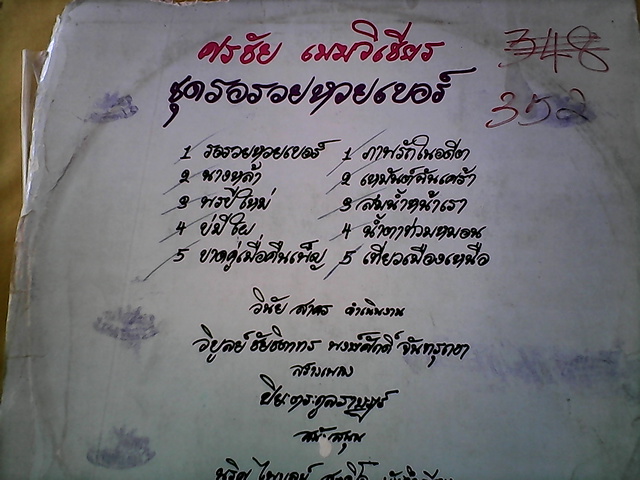 ศรชัย เมฆวิเชียร
348
ชุดรอรวยหวยเบอร์
352
1 รอรวยหวยเบอร์ 1 ภาพรักในอดีต
2 นางหล้า 2 เหมันต์
3 พรปีใหม่ 3 ลมน้ำหน้าเรา
4 บ่มีไผ 4 น้ำตาท่วมหมอน
5 ขาดคู่เมื่อคืนเพ็ญ 5 เที่ยวเมืองเหนือ
วินัย สาคร ดำเนินงาน
วิบูลย์ พงษ์ศักดิ์ จันทรุกขา
สร้างเพลง
สนับสนุน